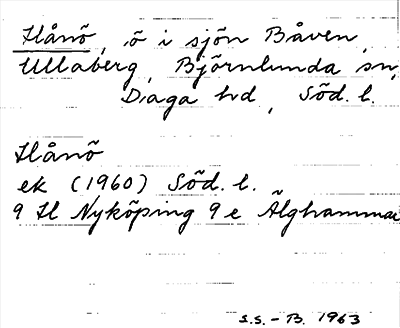 Hånö, ö i sjön Båven,
Ullaberg, Björnlunda sn,
Daga hd, Söd. l.
Hånö
ek (1960) Söd. l.
9 H Nyköping 9 e Älghammar
S.S. - B. 1963